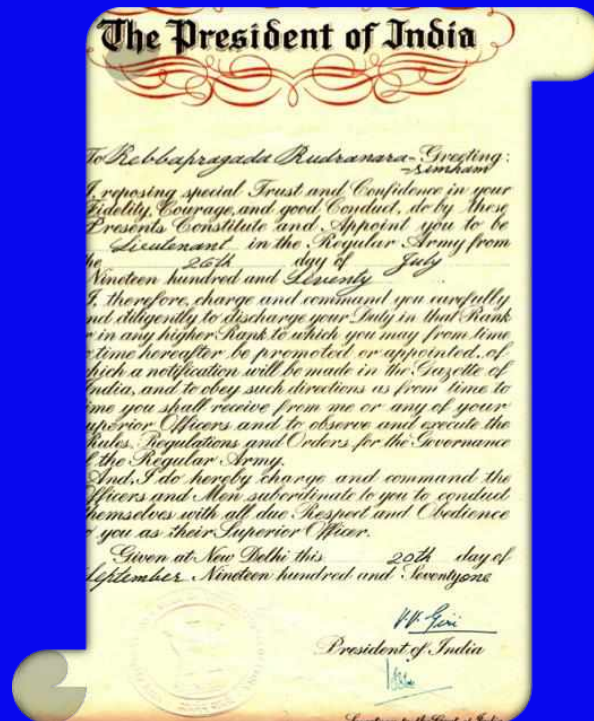 The President of India
To Rebbapragada Rudranara- Greeting:
-simham
I, reposing special Trust and Confidence in your
Fidelity, Courage, and good Conduct, do by these
Presents Constitute and Appoint you to be
Lieutenant in the Regular Army from
he 26th day of July
Nineteen hundred and Seventy
I, therefore, charge and command you carefully
nd diligently to discharge your Duty in that Rank
r in any higher Rank to which you may from time
o time hereafter be promoted or appointed, of
hich a notification will be made in the Gazette of
India, and to obey such directions as from time to
ime you shall receive from me or any of your
uperior Officers and to observe and execute the
Rules, Regulations and Orders for the Governance
f the Regular Army.
And, I do hereby charge and command the
Officers and Men subordinate to you to conduct
hemselves with all due Respect and Obedience
o you as their Superior Officer.
Given at New Delhi this 20th day of
September Nineteen hundred and Seventyone
V.V. Giri
President of India